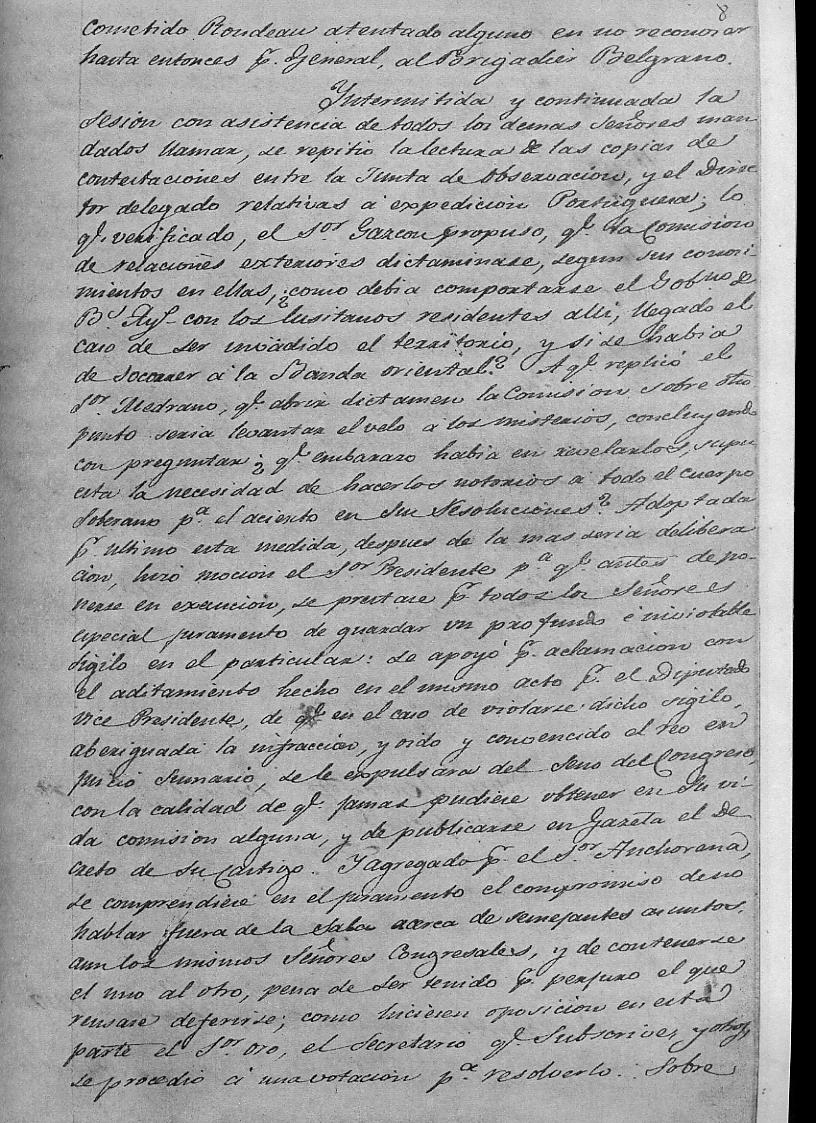 8
cometido Rondeau atentado alguno en no reconocer
hasta entonces p.r General, al Brigadier Belgrano.
Intermitida y continuada la
sesion con asistencia de todos los demas Señores man
dados llamar, se repitio la lectura de las copias de
contestaciones entre la Junta de Observacion, y el Direc
tor delegado relativas á expedicion Portuguesa; lo
q.e verificado, el S.or Gazcon propuso, q.e la Comision
de relaciones exteriores dictaminase, segun sus conoci
mientos en ellas, ¿como debia comportarse el Gob.no de
B.s Ay.s con los Lusitanos residentes alli, llegado el
caso de ser invadido el territorio, y si se habia
de socorrer á la Banda oriental? A q.e replicó el
S.or Medrano, q.e abrir dictamen la Comision sobre otro
punto seria levantar el velo a los misterios, concluyendo
con preguntar ¿q.e embarazo habia en revelarlos, supu
esta la necesidad de hacerlos notorios a todo el cuerpo
Soberano p.a el acierto en sus resoluciones? Adoptada
p.r ultimo esta medida, despues de la mas seria delibera
cion, hizo mocion el S.or Presidente p.a q.e antes de po-
nerse en execucion, se prestase p.r todos los Señores
especial juramento de guardar un profundo é inviolable
sigilo en el particular: se apoyó p.r aclamacion con
el aditamento hecho en el mismo acto p.r el Diputado
Vice Presidente, de q.e en el caso de violarse dicho sigilo,
aberiguada la infraccion, y oido y convencido el reo en
juicio sumario, se le expulsara del Seno del Congreso,
con la calidad de q.e jamas pudiese obtener en su vi-
da comision alguna, y de publicarse en Gazeta el De
creto de su castigo. Y agregado p.r el S.or Anchorena,
se comprendiese en el juramento el compromiso de no
hablar fuera de la Sala acerca de semejantes asuntos,
aun los mismos Señores Congresales, y de contenerse
el uno al otro, pena de ser tenido p.r perjuro el que
rensare deferirse; como hiciesen oposicion en esta
parte el S.or Oro, el Secretario q.e subscrive, y otros,
se procedio á una votacion p.a resolverlo. Sobre